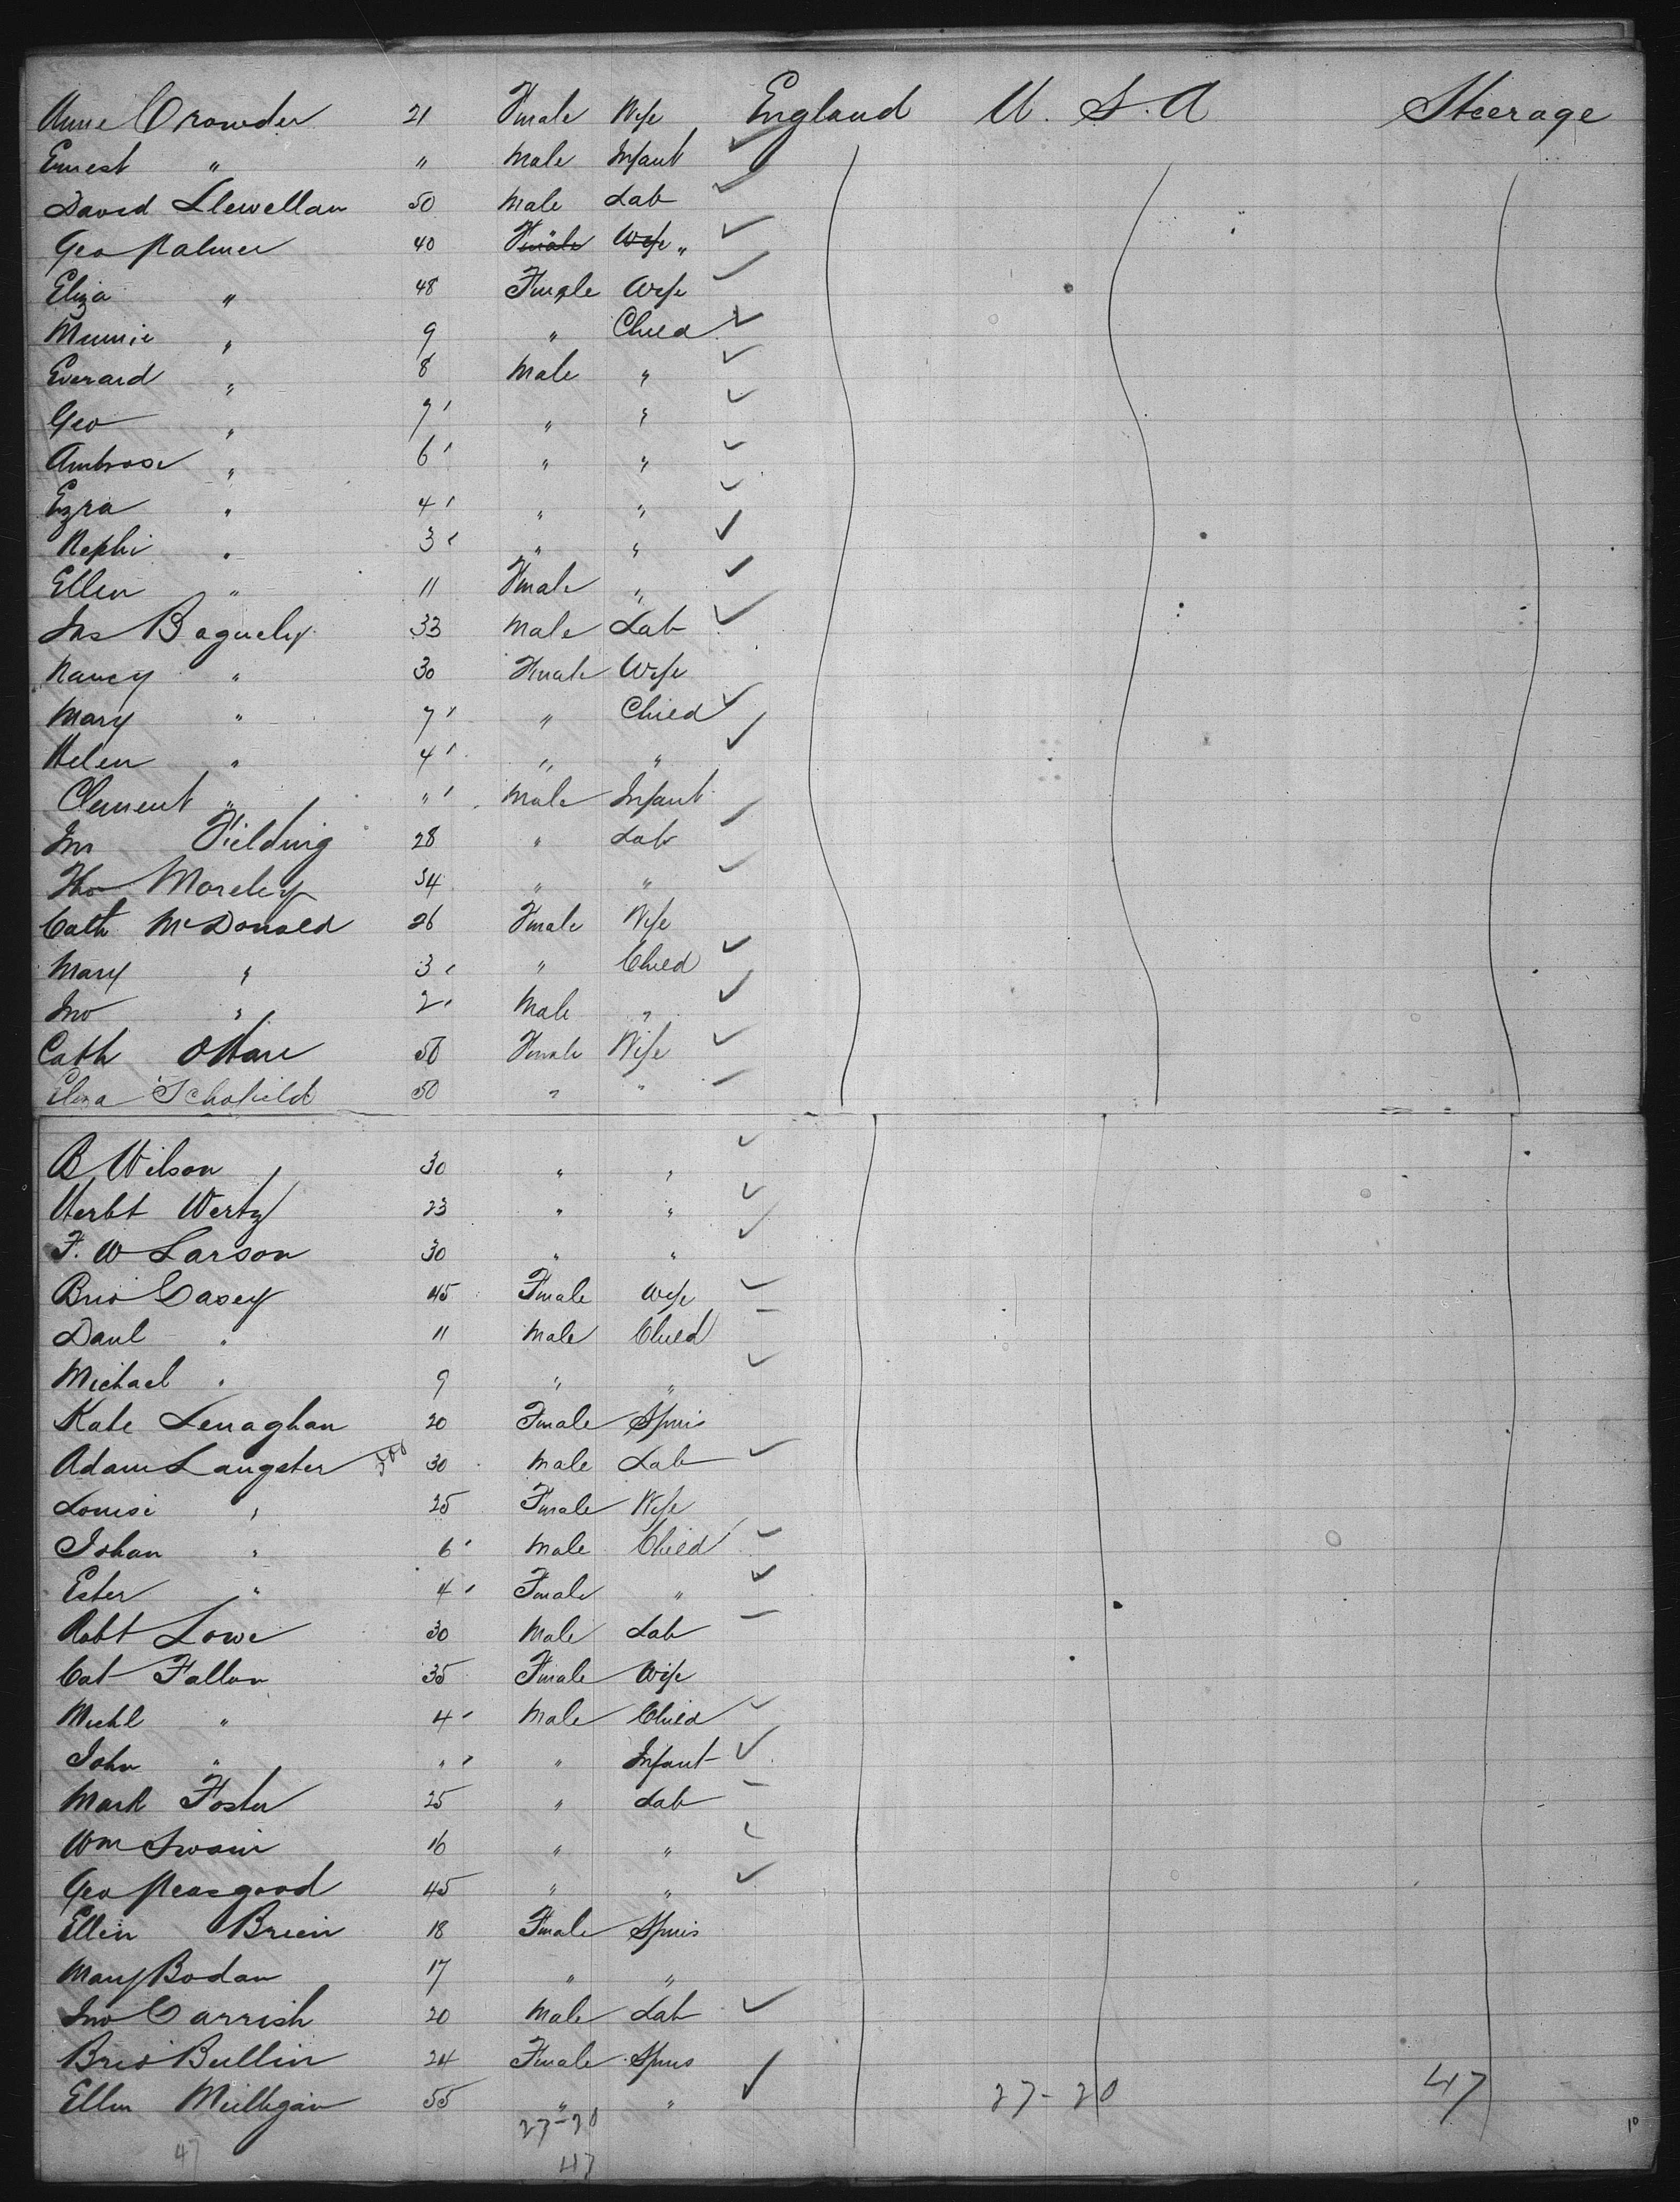 Anne Crowder 21 Female Wife England U. S. A Steerage
Ernest " " Male Infant
David Llewellan 50 Male Lab
Geo Palmer 40 Female Wife "
Eliza " 48 Female Wife
Minnie " 9 " Child
Everard " 8 Male "
Geo " 7 " "
Ambrose " 6 " "
Ezra " 4 " "
Nephi " 3 " "
Ellen " 11 Female "
Jas Baguely 33 Male Lab
Nancy " 30 Female Wife
Mary " 7 " Child
Helen " 4 " "
Clement " " Male Infant
Jno Fielding 28 " Lab
Tho Moreley 34 " "
Cath McDonald 26 Female Wife
Mary " 3 " Child
Jno " 2 Male "
Cath OHare 50 Female Wife
Eliza Schofield 50 " "
B Wilson 30 " "
Herbt Wertz 23 " "
F. W Larson 30 " "
Brid Casey 45 Female Wife
Danl " 11 Male Child
Michael " 9 " "
Kate Lenaghan 20 Female Spins
Adam Langster 30 Male Lab
Louise " 25 Female Wife
Johan " 6 Male Child
Ester " 4 Female "
Robt Lowe 30 Male Lab
Cat Fallon 35 Female Wife
Michl " 4 Male Child
John " " " Infant
Mark Foster 25 " Lab
Wm Swain 16 " "
Geo Peasgood 45 " "
Ellen Brien 18 Female Spins
Mary Bodan 17 " "
Jno Carrish 20 Male Lab
Brid Bullin 24 Female Spins
Ellen Milligan 55 " " 27-20 47
27-20
47 47
10